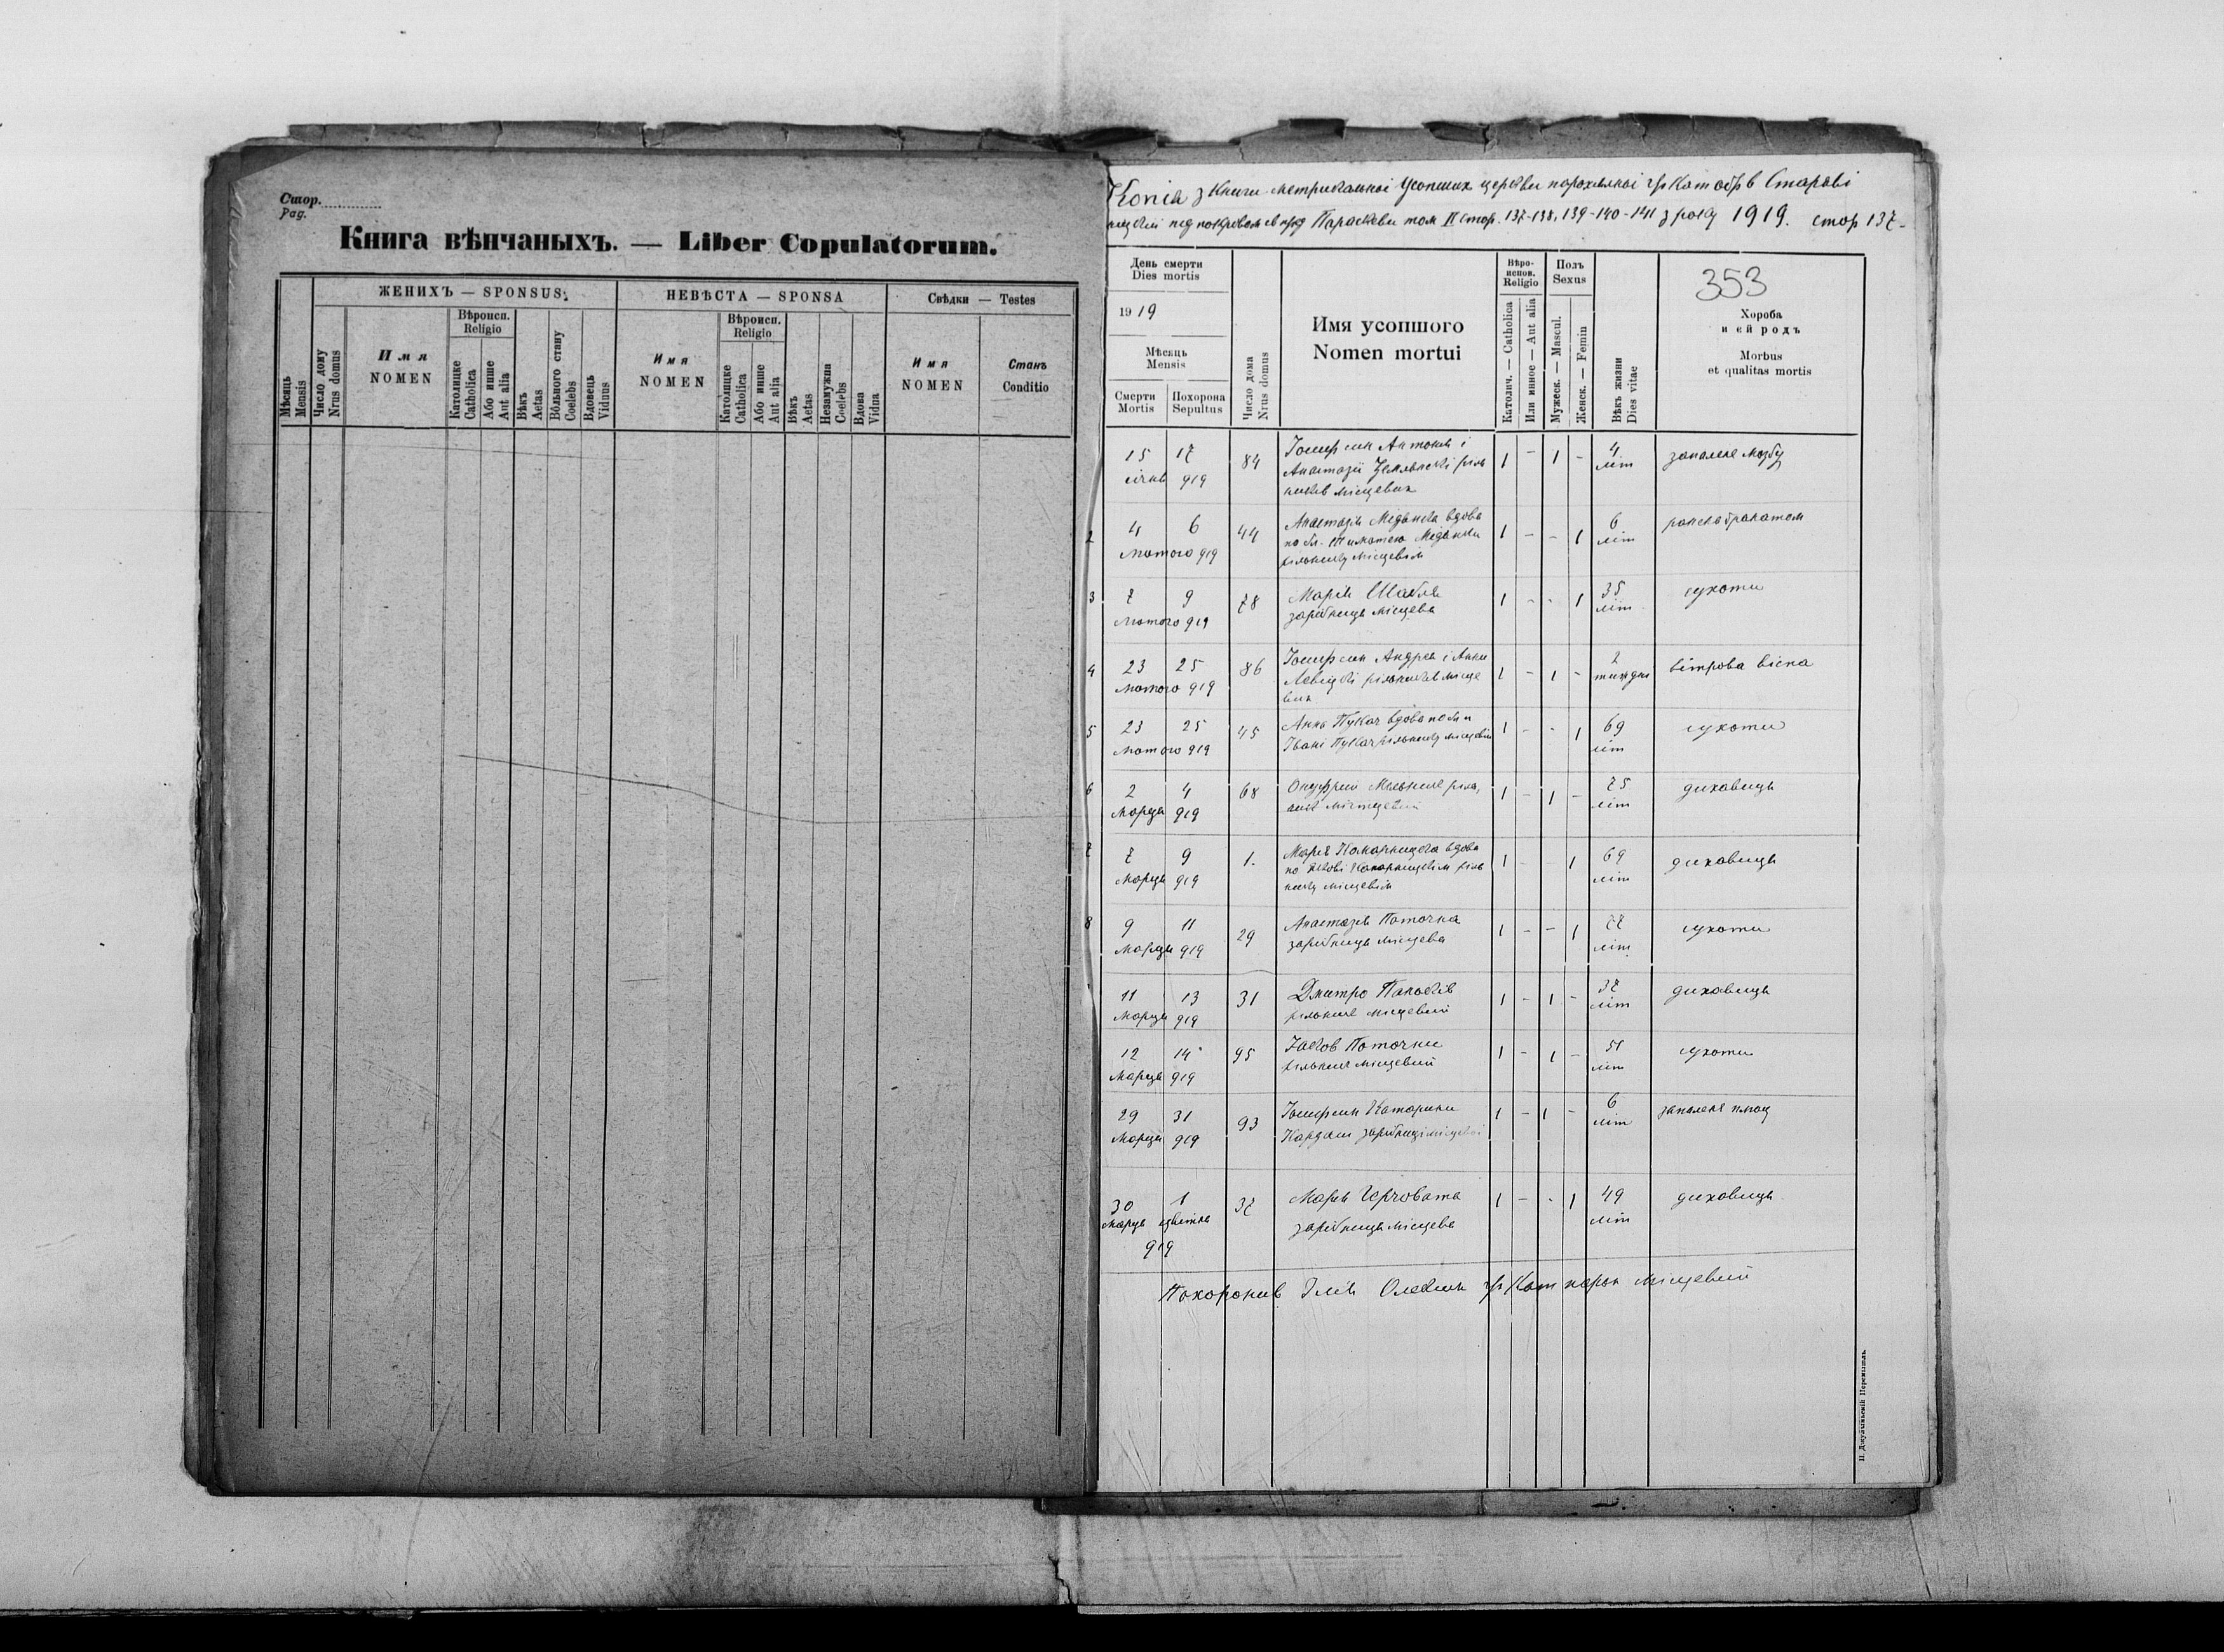 Стор.
Pag.
Книга вѣнчаныхъ. — Liber Copulatorum.
Мѣсяць
Mensis
Число дому
Nrus domus
ЖЕНИХЪ — SPONSUS.
Имя
NOMEN
Вѣроисп.
Religio
Католицке
Catholica
Або инше
Aut alia
Вѣкъ
Aetas
Вôльного стану
Coelebs
Вдовець
Viduus
НЕВѢСТА — SPONSA
Имя
NOMEN
Вѣроисп.
Religio
Католицке
Catholica
Або инше
Aut alia
Вѣкъ
Aetas
Незамужна
Coelebs
Вдова
Vidua
Свѣдки — Testes
Имя
NOMEN
Станъ
Conditio
Копія з Книги метрикальної Усопших церкви парохіяльної гр Кат обр в
під покровом Параскеви том II стор. 137-138, 139-140-141 з року 1919. стор 137-
День смерти
Dies mortis
1919
Мѣсяць
Mensis
Смерти
Mortis
Похорона
Sepultus
Число дома
Nrus domus
Имя усопшого
Nomen mortui
Вѣро-
испов.
Religio
Католич. — Catholica
Или инное — Aut alia
Полъ
Sexus
Мужеск. — Mascul.
Женск. — Femin
Вѣкъ жизни
Dies vitae
353
Хороба
и ей родъ
Morbus
et qualitas mortis
15 17 84 Йосиф син Антонія і 1 - 1 - 4 запаленє мозгу
січня 919 Анастазії літ
місцевих
2 4 6 44 Анастазія вдова 1 - - 1 6
Лютого 919 літ
місцевім
3 7 9 78 Марія Шабля 1 - - 1 35 сухоти
Лютого 919 зарібниця місцева літ
4 23 25 86 Йосиф син Андрея і Анни 1 - 1 - 2 вітрова віспа
Лютого 919 Левіцкі рільників місце тижднї
вих
5 23 25 45 Анна Пукач вдова по бл п 1 - - 1 69 сухоти
Лютого 919 Івані Пукач рільнику місцевім літ
6 2 4 68 Онуфрий Мельник 1 - 1 - 75 диховиця
Марця 919 місцевий літ
7 7 9 1. Марія вдова 1 - - 1 69 диховиця
Марця 919 літ
нику місцевім
8 9 11 29 Анастазія Поточна 1 - - 1 77 сухоти
Марця 919 зарібниця місцева літ
11 13 31 Дмитро 1 - 1 - 37 диховиця
Марця 919 рільник місцевий літ
12 14 95 Яков Поточни 1 - 1 - 51 сухоти
Марця 919 рільник місцевий літ
29 31 93 Йосиф син Катарини 1 - 1 - 6 запаленє плюц
Марця 919 Кардаш зарібниці місцевої літ
30 1 37 Марія 1 - - 1 49 диховиця
Марця цвітня зарібниця місцева літ
919
Похоронив Ілія гр Кат парох місцевий